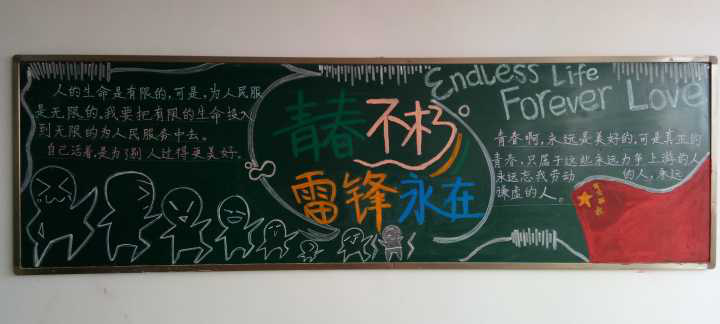 人的生命是有限的,可是,为人民服
是无限的,我要把有限的生命投入
到无限的为人民服务中去。
自己活着,是为了别人过得更美好。
青春不朽
雷锋永在
Endless Life
Forever Love
青春啊,永远是美好的,可是真正的
青春,只属于这些永远力争上游的人
永远忘我劳动 的人,永远
谦虚的人。